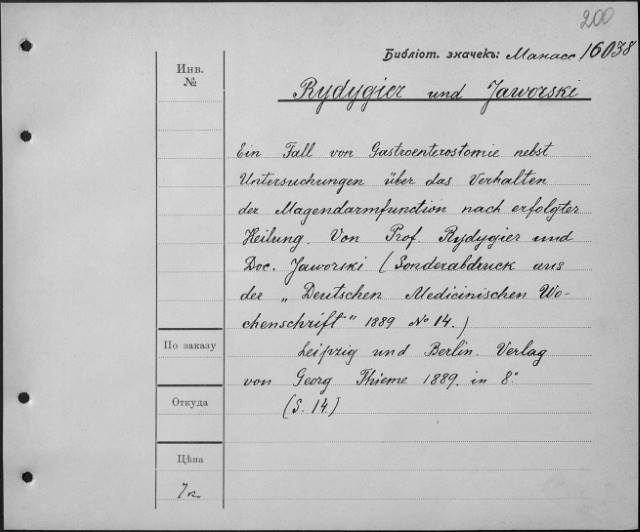 200
Библіот. значекъ: Манасс 16038
Инв.
№
Rydygier und Jaworski
Ein Fall von Gastroenterostomie nebst
Untersuchungen über das Verhalten
der Magendarmfunction nach erfolgter
Heilung. Von Prof. Rydygier und
Doc. Jaworski (Sonderabdruck aus
der „Deutschen Medicinischen Wo-
chenschrift" 1889 No 14.)
Leipzig und Berlin. Verlag
von Georg Thieme 1889. in 8.°
(S. 14.)
По заказу
Откуда
Цѣна